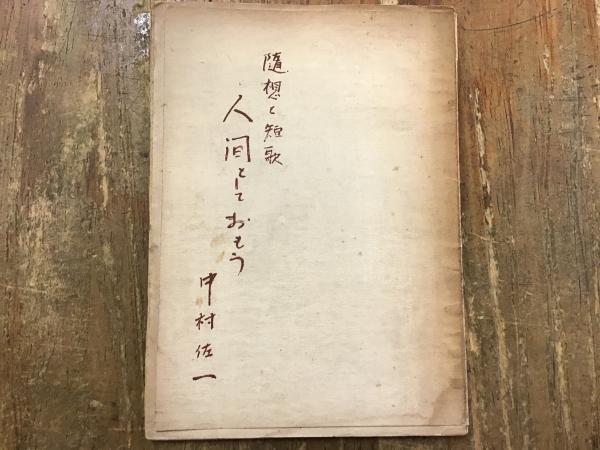 隨想と短歌
人间としておもう
中村佐一